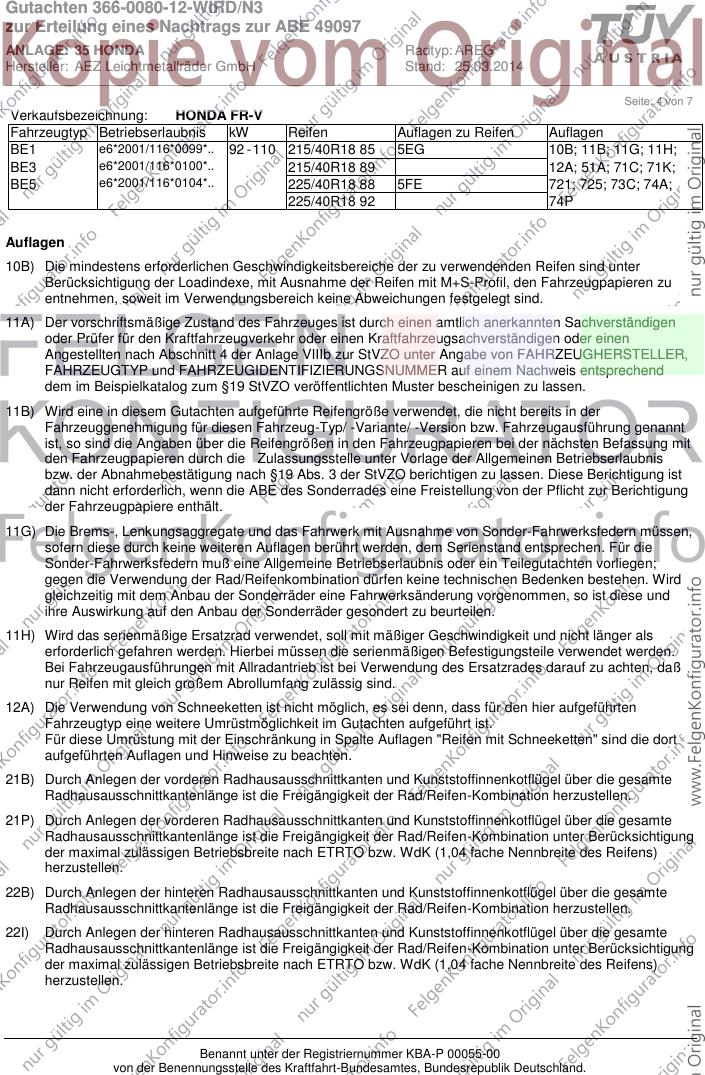 Gutachten 366-0080-12-WIRD/N3
zur Erteilung eines Nachtrags zur ABE 49097
ANLAGE: 35 HONDA
Radtyp: AREG
Hersteller: AEZ Leichtmetallräder GmbH
Stand: 25.03.2014
TÜV
AUSTRIA
Kopie vom Original
Seite: 4 von 7
Verkaufsbezeichnung: HONDA FR-V
Fahrzeugtyp Betriebserlaubnis kW Reifen Auflagen zu Reifen Auflagen
BE1 e6*2001/116*0099*.. 92-110 215/40R18 85 5EG 10B; 11B; 11G; 11H;
BE3 e6*2001/116*0100*.. 215/40R18 89 12A; 51A; 71C; 71K;
BE5 e6*2001/116*0104*.. 225/40R18 88 5FE 721; 725; 73C; 74A;
225/40R18 92 74P
Auflagen
10B) Die mindestens erforderlichen Geschwindigkeitsbereiche der zu verwendenden Reifen sind unter
Berücksichtigung der Loadindexe, mit Ausnahme der Reifen mit M+S-Profil, den Fahrzeugpapieren zu
entnehmen, soweit im Verwendungsbereich keine Abweichungen festgelegt sind.
11A) Der vorschriftsmäßige Zustand des Fahrzeuges ist durch einen amtlich anerkannten Sachverständigen
oder Prüfer für den Kraftfahrzeugverkehr oder einen Kraftfahrzeugsachverständigen oder einen
Angestellten nach Abschnitt 4 der Anlage VIIIb zur StVZO unter Angabe von FAHRZEUGHERSTELLER,
FAHRZEUGTYP und FAHRZEUGIDENTIFIZIERUNGSNUMMER auf einem Nachweis entsprechend
dem im Beispielkatalog zum §19 StVZO veröffentlichten Muster bescheinigen zu lassen.
11B) Wird eine in diesem Gutachten aufgeführte Reifengröße verwendet, die nicht bereits in der
Fahrzeuggenehmigung für diesen Fahrzeug-Typ/ -Variante/ -Version bzw. Fahrzeugausführung genannt
ist, so sind die Angaben über die Reifengrößen in den Fahrzeugpapieren bei der nächsten Befassung mit
den Fahrzeugpapieren durch die Zulassungsstelle unter Vorlage der Allgemeinen Betriebserlaubnis
bzw. der Abnahmebestätigung nach §19 Abs. 3 der StVZO berichtigen zu lassen. Diese Berichtigung ist
dann nicht erforderlich, wenn die ABE des Sonderrades eine Freistellung von der Pflicht zur Berichtigung
der Fahrzeugpapiere enthält.
11G) Die Brems-, Lenkungsaggregate und das Fahrwerk mit Ausnahme von Sonder-Fahrwerksfedern müssen,
sofern diese durch keine weiteren Auflagen berührt werden, dem Serienstand entsprechen. Für die
Sonder-Fahrwerksfedern muß eine Allgemeine Betriebserlaubnis oder ein Teilegutachten vorliegen;
gegen die Verwendung der Rad/Reifenkombination dürfen keine technischen Bedenken bestehen. Wird
gleichzeitig mit dem Anbau der Sonderräder eine Fahrwerksänderung vorgenommen, so ist diese und
ihre Auswirkung auf den Anbau der Sonderräder gesondert zu beurteilen.
11H) Wird das serienmäßige Ersatzrad verwendet, soll mit mäßiger Geschwindigkeit und nicht länger als
erforderlich gefahren werden. Hierbei müssen die serienmäßigen Befestigungsteile verwendet werden.
Bei Fahrzeugausführungen mit Allradantrieb ist bei Verwendung des Ersatzrades darauf zu achten, daß
nur Reifen mit gleich großem Abrollumfang zulässig sind.
12A) Die Verwendung von Schneeketten ist nicht möglich, es sei denn, dass für den hier aufgeführten
Fahrzeugtyp eine weitere Umrüstmöglichkeit im Gutachten aufgeführt ist.
Für diese Umrüstung mit der Einschränkung in Spalte Auflagen "Reifen mit Schneeketten" sind die dort
aufgeführten Auflagen und Hinweise zu beachten.
21B) Durch Anlegen der vorderen Radhausausschnittkanten und Kunststoffinnenkotflügel über die gesamte
Radhausausschnittkantenlänge ist die Freigängigkeit der Rad/Reifen-Kombination herzustellen.
21P) Durch Anlegen der vorderen Radhausausschnittkanten und Kunststoffinnenkotflügel über die gesamte
Radhausausschnittkantenlänge ist die Freigängigkeit der Rad/Reifen-Kombination unter Berücksichtigung
der maximal zulässigen Betriebsbreite nach ETRTO bzw. WdK (1,04 fache Nennbreite des Reifens)
herzustellen.
22B) Durch Anlegen der hinteren Radhausausschnittkanten und Kunststoffinnenkotflügel über die gesamte
Radhausausschnittkantenlänge ist die Freigängigkeit der Rad/Reifen-Kombination herzustellen.
22I) Durch Anlegen der hinteren Radhausausschnittkanten und Kunststoffinnenkotflügel über die gesamte
Radhausausschnittkantenlänge ist die Freigängigkeit der Rad/Reifen-Kombination unter Berücksichtigung
der maximal zulässigen Betriebsbreite nach ETRTO bzw. WdK (1,04 fache Nennbreite des Reifens)
herzustellen.
Benannt unter der Registriernummer KBA-P 00055-00
von der Benennungsstelle des Kraftfahrt-Bundesamtes, Bundesrepublik Deutschland.
FELGEN
KONFIGURATOR
FelgenKonfigurator.info
nur gültig im Original
www.FelgenKonfigurator.info
nur gültig im Original